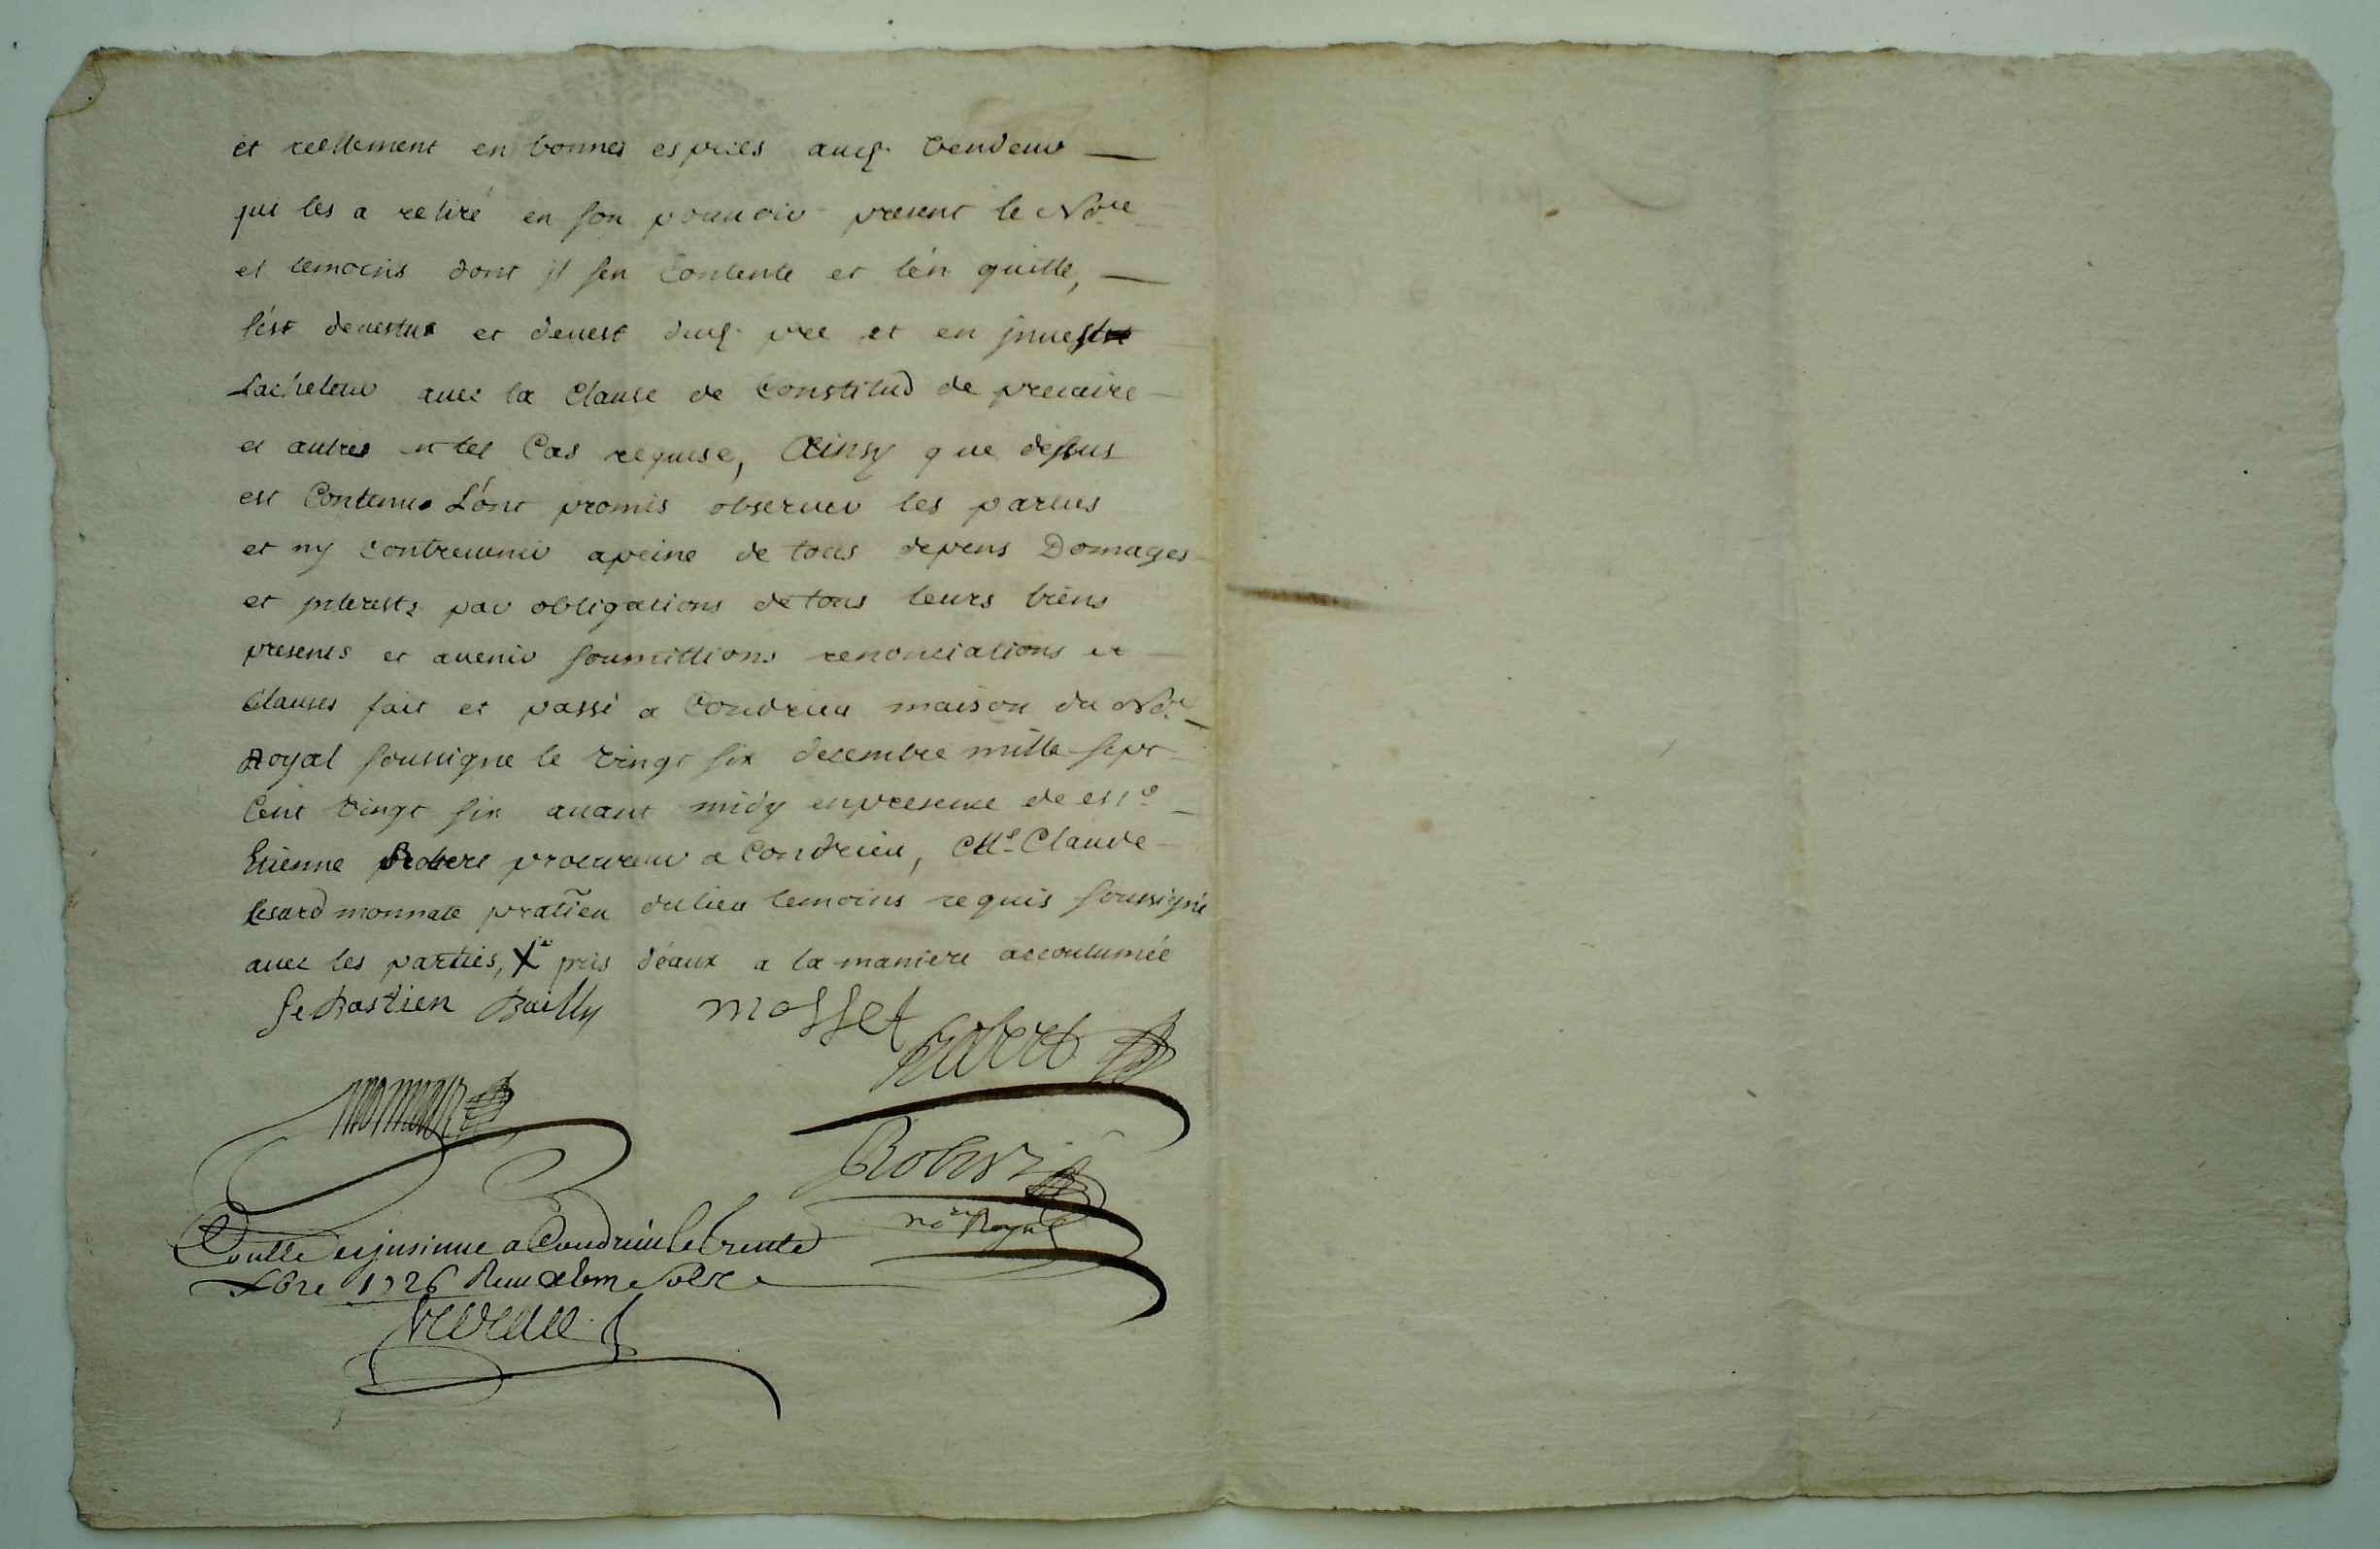 et reellement en bonnes espices audt. vendeur
qui les a retiré en son pouuoir present le Nore
et temoins dont jl sen contente et len quitte,
sést deuestus et deuest dudt. pre et en jnuest
Lacheteur auec la clause de constitud de precaire
et autres a tel Cas requise, Ainsy que dessus
est Contenus L'ont promis obseruer les parties
et ny contreuenir apeine de tous depens Domages
et jnterests par obligations de tous leurs biens
presents et auenir soumittions renonciations et
clauses fait et passé a Condrieu maison du Nore
Royal soussigne le vingt six decembre mille sept
Cent vingt six auant midy enpresence de Me
Etienne Robert procureur a Condrieu, Me Claude
monnate pratien dulieu temoins requis soussignés
auec les parties, pris déaux a la maniere accoutumée
Sebastien Bailly mosset
Robert
monnate
Robert
nore Royal
Conllé et jnsinué a Condrieu le trente
Xbre 1726 Receu